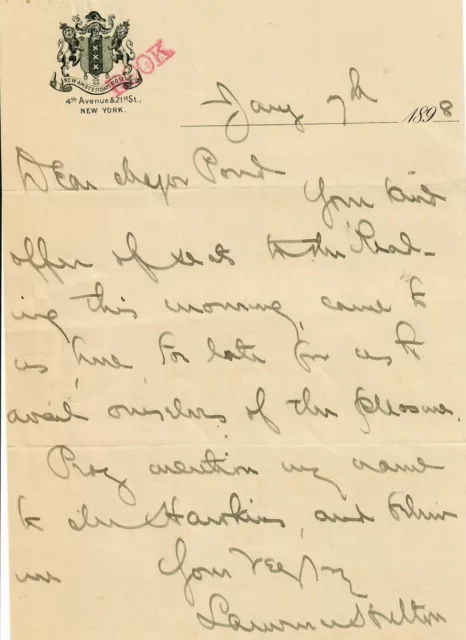 NEW AMSTERDAM HOTEL
BOOK
4th Avenue & 21st St.,
NEW YORK.
Jany 7th 1898
Dear Major Pond
Your kind
offer of seats to the Read-
ing this morning, came to
us, here, too late for us to
avail ourselves of the pleasure.
Pray mention my name
to Hawkins, and believe
me Yours Very truly
Laurence Hutton